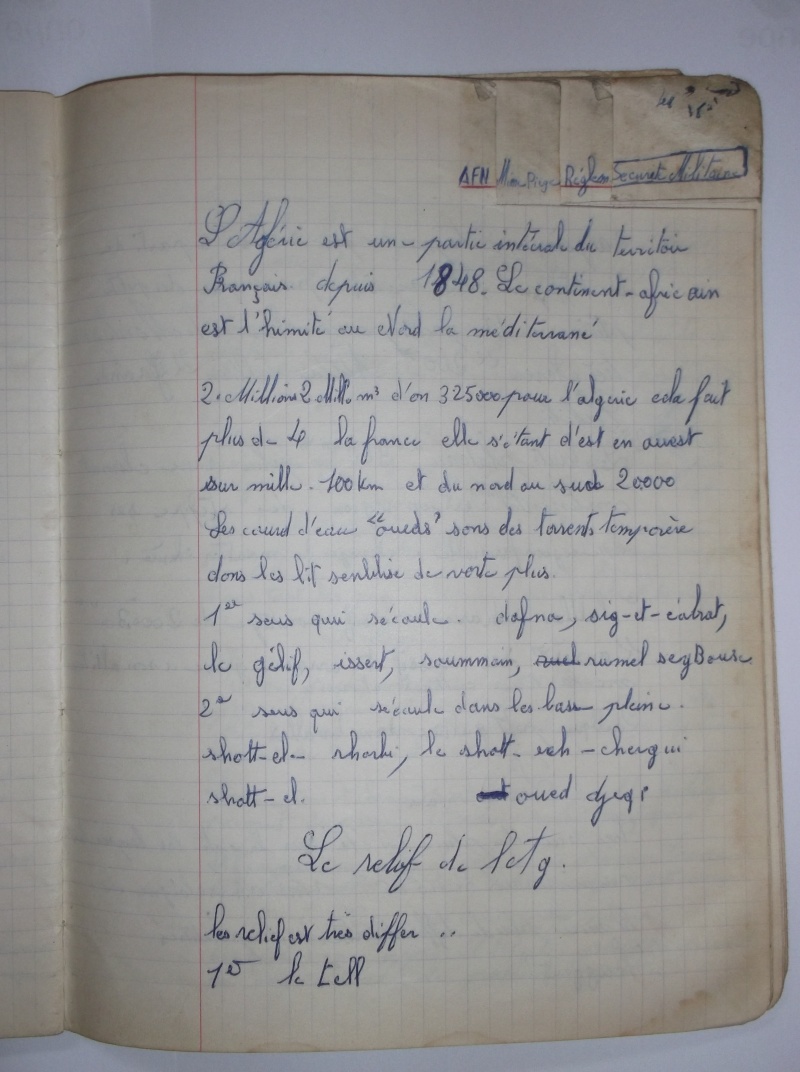 AFN Mine Piège Réglem Securet Militaire
L'Algérie est un- partie intéral du territoir
Français depuis 1848. Le continent-africain
est l'himité au Nord la méditerrané
2. Millions 2 Mill. m³ d'on 325000 pour l'algerie cela fait
plus de 4 la france elle s'étant d'est en ouest
sur mille. 100 km et du nord au sud 20000
Les courd d'eau "oueds" sons des torrents temporère
dans les lit senblise de vorte plus.
1er seus qui sécoule. dafna, sig-et-
le gélif, issert, soummam, rumel seyBouse
2e seus qui sécoule dans les bass pleine.
shott-el- rharbi, le shott- ech-chergui
shott-el. oued
Le relief de l'Alg.
les relief est très differ ..
1er le tell